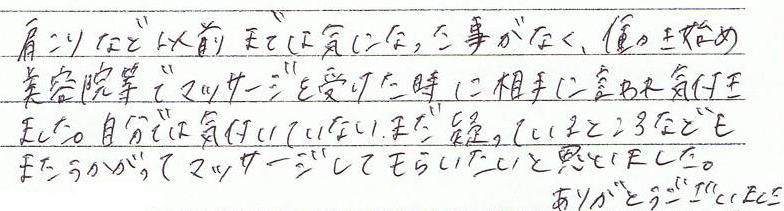 肩こりなど以前までは気になった事がなく、働き始め
美容院等でマッサージを受けた時に相手に言われ気付き
ました。自分では気付いていない、まだ凝っているところなども
またうかがってマッサージしてもらいたいと思いました。
ありがとうございました